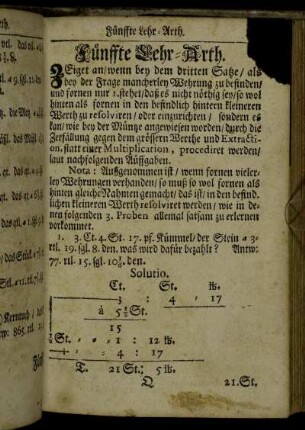 Fünffte Lehr-Arth.
Fünffte Lehr-Arth.
ZEiget an/wenn bey dem dritten Satze/ als
bey der Frage mancherley Wehrung zu befinden/
und fornen nur 1. stehet/daß es nicht nöthig sey/so wol
hinten als fornen in den befindlich hintern kleineren
Werth zu resolviren/ oder einzurichten / sondern es
kan/wie bey der Müntz angewiesen worden/durch die
Zerfällung gegen dem grössern Werthe und Extracti-
on, statt einer Multiplication, procediret werden/
laut nachfolgenden Auffgaben.
Nota: Außgenommen ist / wenn fornen vieler-
ley Wehrungen verhanden/ so muß so wol fornen als
hinten gleiche Nahmen gemacht/ das ist/ in den befind-
lichen kleineren Werth resolviret werden/ wie in de-
nen folgenden 3. Proben allemal satsam zu erlernen
vorkommet.
1. 3. Ct. 4. St. 17. pf. Kümmel/ der Stein a 3.
rtl. 19. sgl. 8. den. was wird dafür bezahlt? Antw:
77. rtl. 15. sgl. 10⅔. den.
Solutio.
Ct. St. lb.
3 : 4 · 17
à 5½ St.
15
½ St. 1 : 12 lb.
4 : 17
T. 21 St: 5 lb.
Q 21. St.